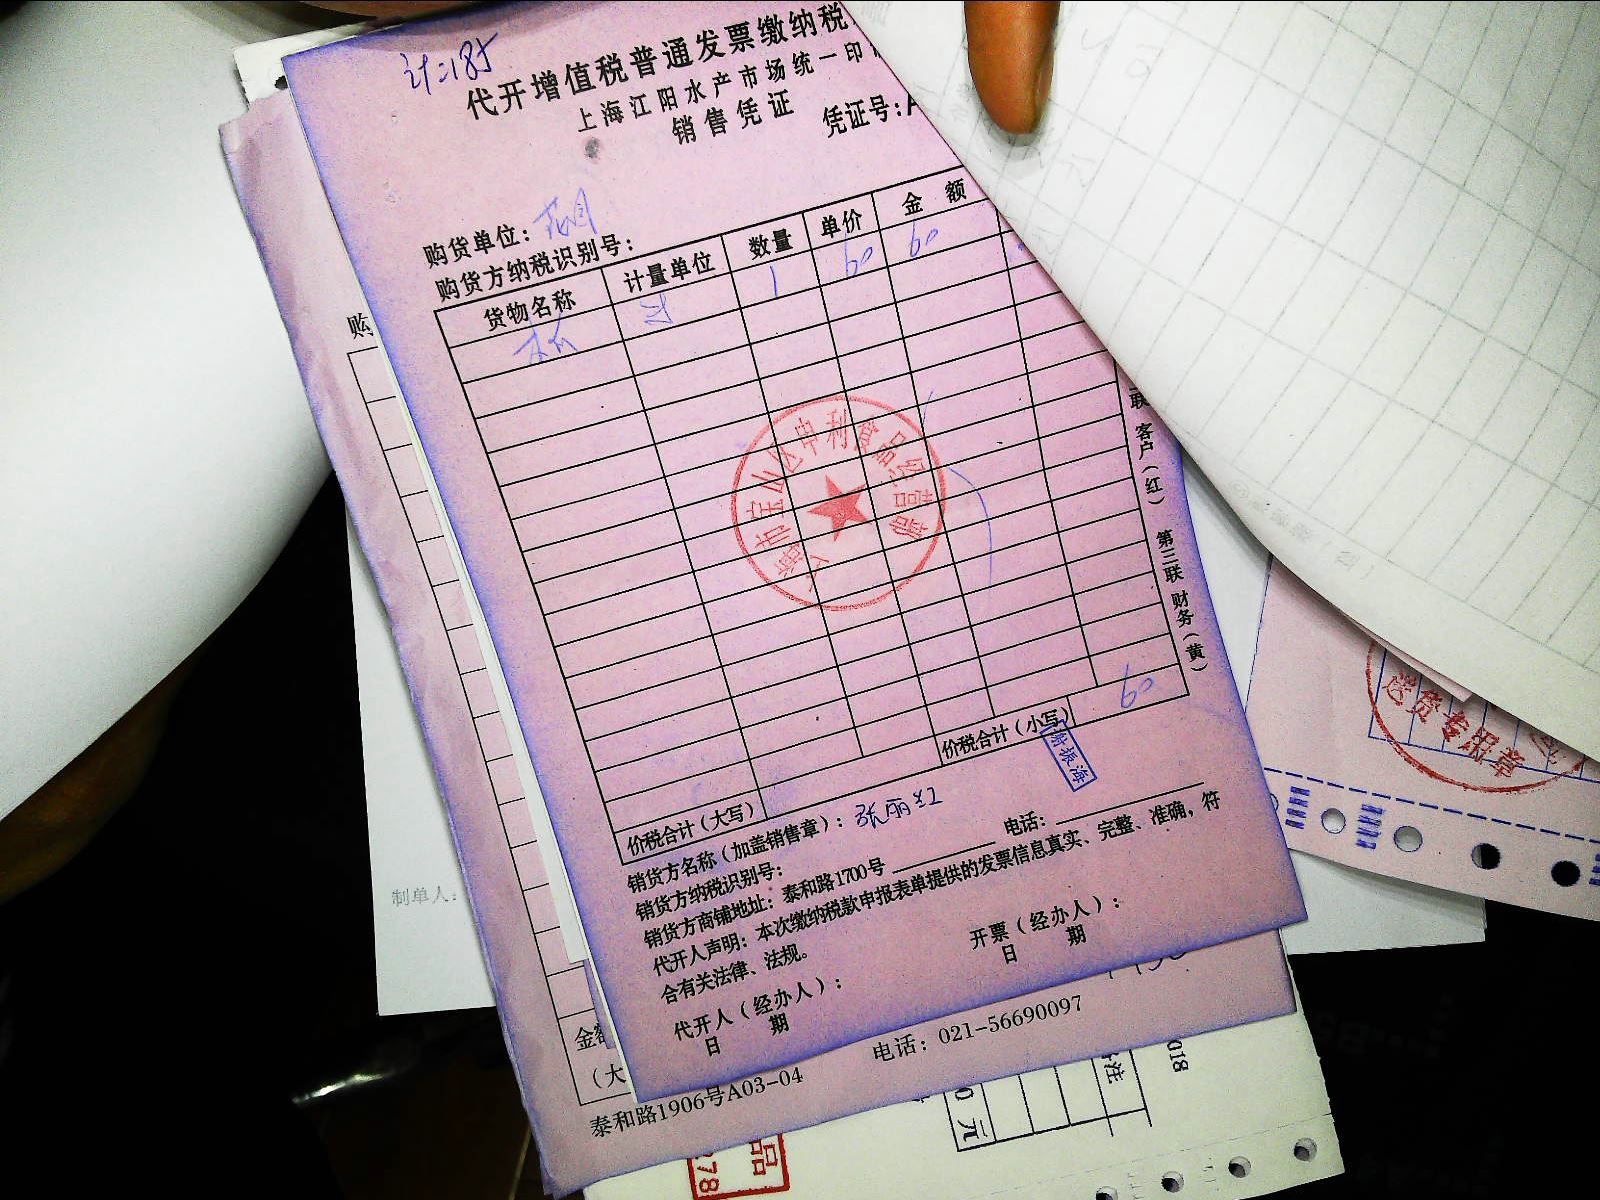 代开增值税普通发票缴纳税
上海江阳水产市场统一印
销售凭证
凭证号：A
购货单位：
购货方纳税识别号：
货物名称 计量单位 数量 单价 金额
1 60 60
上海市宝山区申利食品经营部
联 客户（红） 第三联 财务（黄）
价税合计（小写） 60
振海
价税合计（大写）
销货方名称（加盖销售章）：张丽红
销货方纳税识别号： 电话：
销货方商铺地址：泰和路1700号
代开人声明：本次缴纳税款申报表单提供的发票信息真实、完整、准确，符
合有关法律、法规。
代开人（经办人）： 开票（经办人）：
日 期 日 期
购
制单人：
金额
（大
泰和路1906号A03-04 电话：021-56690097
送货专用章
元
注
018
品
378